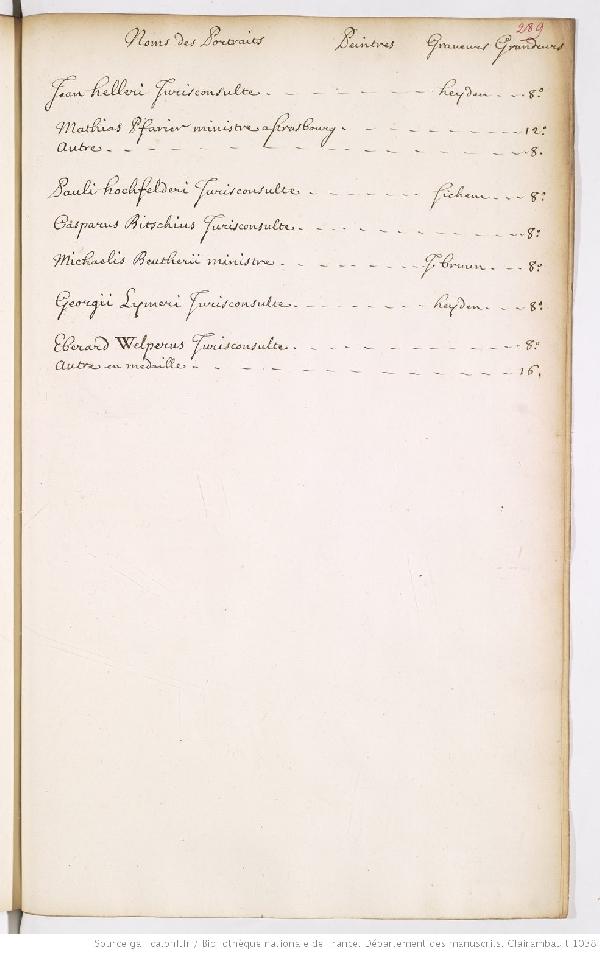 289
Noms des Portraits Peintres Graveurs Grandeurs
Jean Helleri Jurisconsulte heyden 8°
Mathias Pfarier ministre a strasbourg 12°
Autre 8.
Pauli hochfelderi Jurisconsulte 8°
Gasparus Bitschius Jurisconsulte 8°
Michaelis Beutherii ministre J. bruun 8°
Georgii Lymeri Jurisconsulte heyden 8°
Eberard Welperus Jurisconsulte 8°
Autre en medaille 16.
Source gallica.bnf.fr / Bibliothèque nationale de France. Département des manuscrits. Clairambault 1038